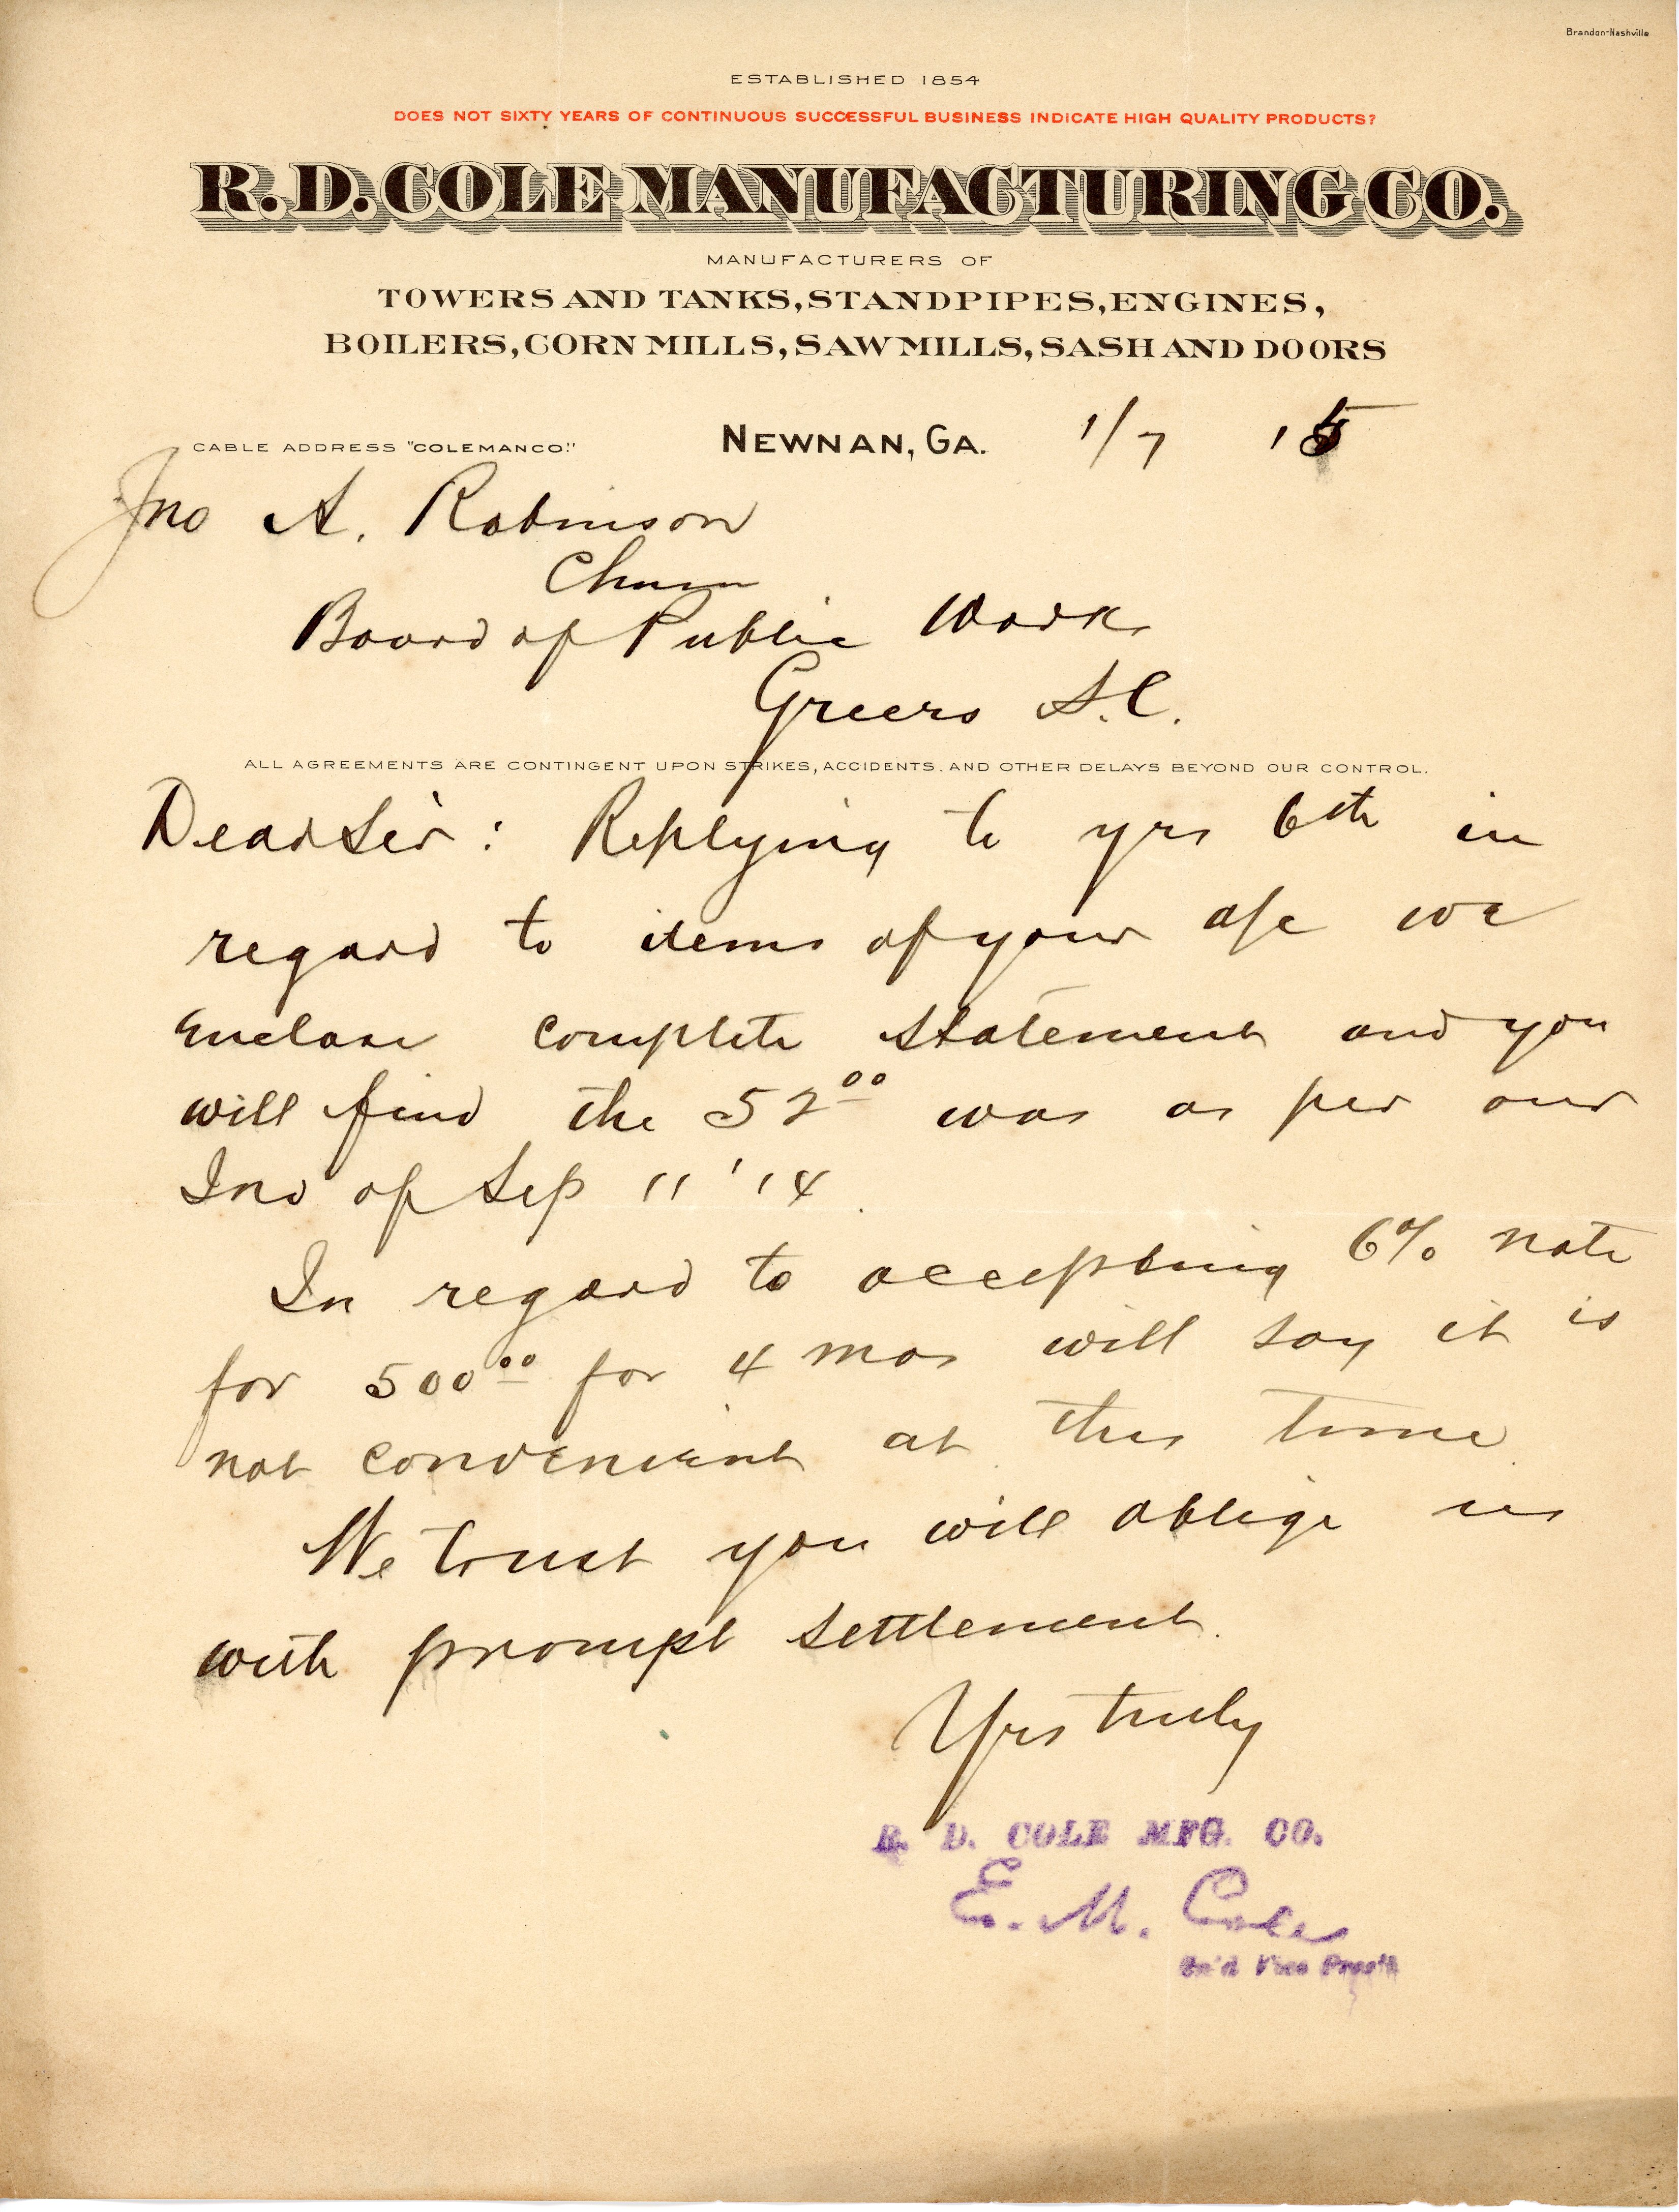 Brandon-Nashville
ESTABLISHED 1854
DOES NOT SIXTY YEARS OF CONTINUOUS SUCCESSFUL BUSINESS INDICATE HIGH QUALITY PRODUCTS?
R. D. COLE MANUFACTURING CO.
MANUFACTURERS OF
TOWERS AND TANKS, STANDPIPES, ENGINES,
BOILERS, CORN MILLS, SAW MILLS, SASH AND DOORS
CABLE ADDRESS "COLEMANCO." NEWNAN, GA. 1/7 '15
Jno A. Robinson
Chmn
Board of Public Works
Greers S.C.
ALL AGREEMENTS ARE CONTINGENT UPON STRIKES, ACCIDENTS. AND OTHER DELAYS BEYOND OUR CONTROL.
Dear Sir: Replying to yrs 6th in
regard to items of your a/c we
enclose complete statement and you
will find the 52 00 was as per our
Inv of Sep 11 '14.
In regard to accepting 6% note
for 500 00 for 4 mos will say it is
not convenient at this time.
We trust you will oblige us
with prompt settlement.
Yrs truly
R. D. COLE MFG. CO.
E. M. Cole
Vice Pres't